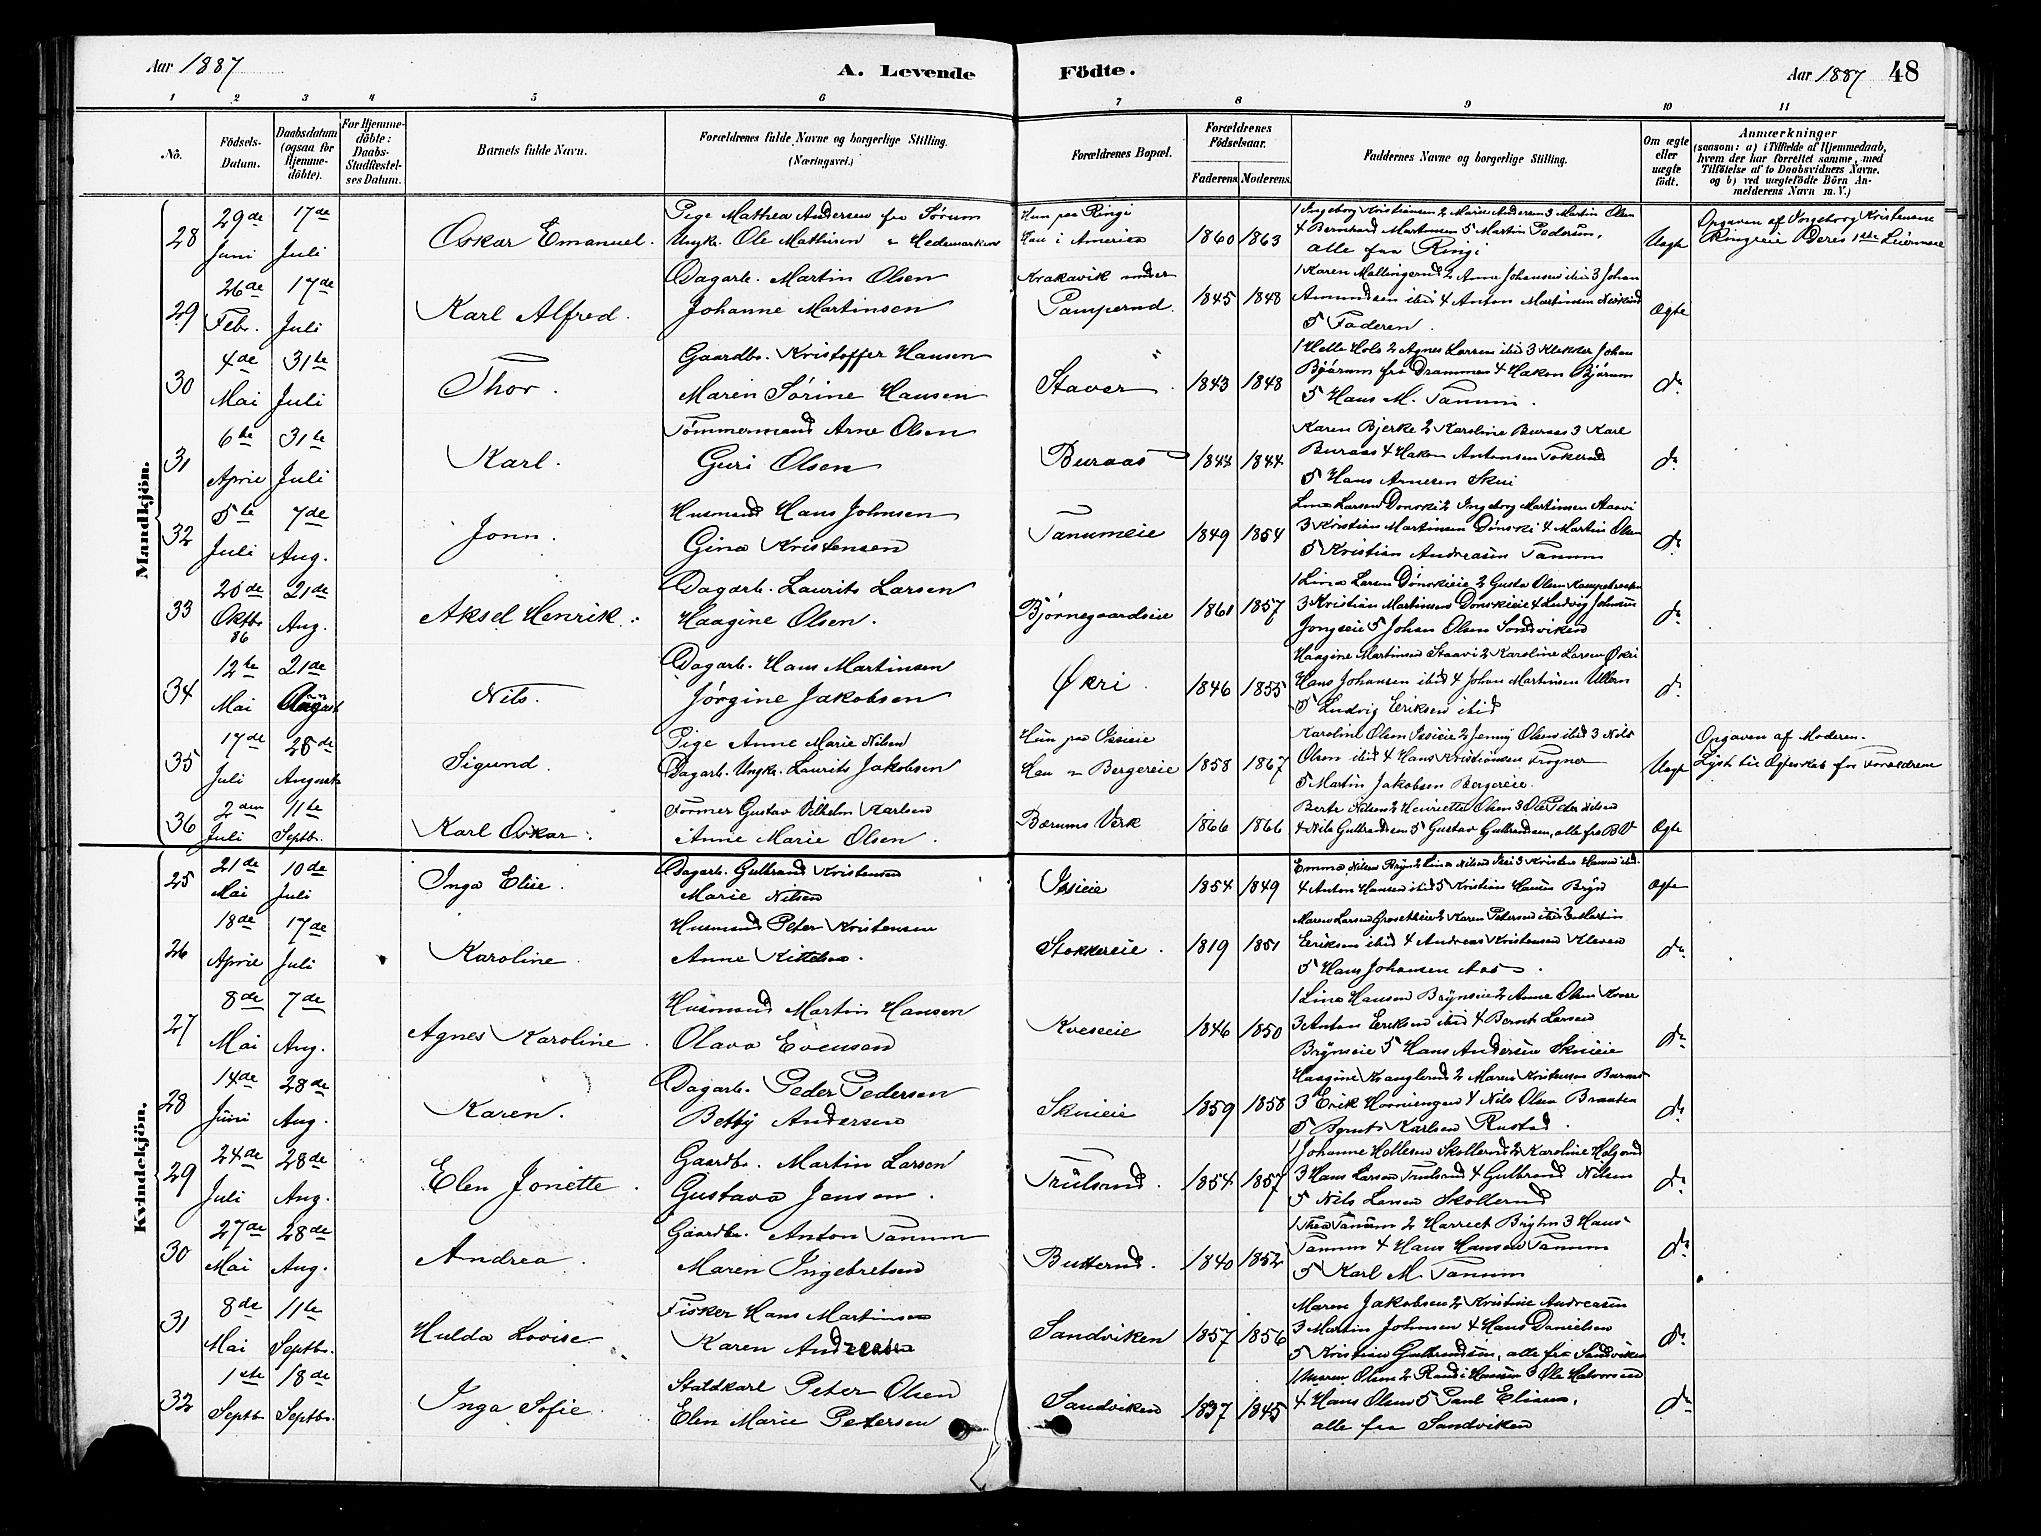 Aar 1887
A. Levende
Födte.
Aar 1887 48
1 2 3 4 5 6 7 8 9 10 11
No.
Födsels-Datum.
Daabsdatum (ogsaa for Hjemme-döbte).
For Hjemme-döbte: Daabs-Stadfæstel-ses Datum.
Barnets fulde Navn.
Forældrenes fulde Navne og borgerlige Stilling.
(Næringsvei.)
Forældrenes Bopæl.
Forældrenes Födselsaar.
Faderens. Moderens.
Faddernes Navne og borgerlige Stilling.
Om ægte eller uægte födt.
Anmærkninger
(saasom: a) i Tilfælde af Hjemmedaab, hvem der har forrettet samme, med Tilföielse af to Daabsvidners Navne. og b) ved uægtefödte Börn An-melderens Navn m. V.)
Mandkjön.
28 29de Juni 17de Juli Oskar Emanuel. Pige Mathea Andersen fra Sørum
Ungk. Ole Mathisen " Hedemarken
Hun paa Ringi
Han i America
1860 1863
1 Ingeborg Kristiansen 2 Marie Andersen 3 Martin Olsen
4 Bernhard Martinsen 5 Martin Pedersen,
alle fra Ringi
Uægte
Opgaven af Ingeborg Kristensen
Ringieie Deres 1ste Leiermaal
29 26de Febr. 17de Juli Karl Alfred. Dagarb. Martin Olsen
Johanne Martinsen
Krakavik under
Pamperud.
1845 1848
1 Karen Mellingerud 2 Anne Johansen ibid 3 Johan
Amundsen ibid 4 Anton Martinsen
5 Faderen.
Ægte
30 4de Mai 31te Juli Thor. Gaardbr. Kristoffer Hansen
Maren Sørine Hansen
Staver.
1843 1848
1 Helle Hols 2 Agnes Larsen ibid 3 Klokker Johan
Bjørum fra Drammen 4 Hakon Bjørum
5 Hans M. Tanum.
do
31 6te April 31te Juli Karl. Tømmermand Arne Olsen
Guri Olsen
Buraas
1844 1844
Karen Bjerke 2 Karoline Buraas 3 Karl
Buraas 4 Hakon Antonsen Tokerud
5 Hans Arnesen Skui
do
32 5te Juli 7de Aug. Jonn. Husmand Hans Johnsen
Gina Kristensen
Tanumeie
1849 1854
Lina Larsen Dønski 2 Ingeborg Martinsen Staavi
3 Kristian Martinsen Dønski 4 Martin Olsen
5 Kristian Andreasen Tanum
do
33 20de Oktbr. 86 21de Aug. Aksel Henrik. Dagarb. Laurits Larsen
Haagine Olsen.
Bjørnegaardseie
1861 1857
1 Lina Larsen Dønskieie 2 Gusta Olsen
3 Kristian Martinsen Dønskieie 4 Ludvig Johnsen
Jongseie 5 Johan Olsen Sandviken
do
34 12te Mai 21de August Nils. Dagarb. Hans Martinsen
Jørgine Jakobsen
Økri.
1846 1855
Haagine Martinsen Staavi 2 Karoline Larsen Økri
Hans Johansen ibid 4 Johan Martinsen Ullern
5 Ludvig Eriksen ibid
do
35 17de Juli 28de August Sigurd. Pige Anne Marie Nilsen
Dagarb. Ungk. Laurits Jakobsen
Hun paa Isieie
Han " Bergereie
1858 1867
Karoline Olsen Isieie 2 Jenny Olsen ibid 3 Nils
Olsen ibid 4 Hans Kristiansen Frogner
5 Martin Jakobsen Bergereie.
Uægte
Opgaven af Moderen.
Lyst til Ægteskab for Forældrene
36 2den Juli 11te Septbr. Karl Oskar. Former Gustav Vilhelm Karlsen
Anne Marie Olsen.
Bærums Verk
1866 1866
Berte Nilsen 2 Henriette Olsen 3 Ole Peter Nilsen
4 Nils Gulbrandsen 5 Gustav Gulbrandsen, alle fra B V
Ægte
Kvindekjön.
25 21de Mai 10de Juli Inga Elise. Dagarb. Gulbrand Kristensen
Marie Nilsen
Isieie
1854 1849
Emma Nilsen Bryn 2 Lina Nilsen Isi 3 Kristen Hansen ibid.
4 Anton Hansen ibid 5 Kristian Hansen Bryn
Ægte
26 18de April 17de Juli Karoline. Husmand Peter Kristensen
Anne Kittelsen.
Stokkereie.
1819 1851
Maren Larsen 2 Karen Petersen ibid 3 Martin
Eriksen ibid 4 Andreas Kristensen Kleven
5 Hans Johansen Aas.
do
27 8de Mai 7de Aug. Agnes Karoline. Husmand Martin Hansen
Olava Evensen
Kveseie
1846 1850
1 Lina Hansen Brynseie 2 Anne Olsen
3 Anton Eriksen ibid 4 Bernt Larsen
Brynseie 5 Hans Andersen Skuieie
do
28 14de Juni 28de Aug. Karen. Dagarb. Peder Pedersen
Betty Andersen
Skuieie
1859 1858
Haagine Kranglerud 2 Maren Kristensen Buraas
3 Erik Horniengen 4 Nils Olsen Braaten
5 Bernt Karlsen Rustad.
do
29 24de Juli 28de Aug. Elen Jonette. Gaardbr. Martin Larsen
Gustava Jensen.
Trulsrud.
1854 1857
1 Johanne Hellesen Skollerud 2 Karoline
3 Hans Larsen Trulsrud 4 Gulbrand Nilsen
5 Nils Larsen Skollerud
do
30 27de Mai 28de Aug. Andrea. Gaardbr. Anton Tanum
Maren Ingebretsen
Butterud.
1840 1852
1 Thea Tanum 2 Harriet Bryhn 3 Hans
Tanum 4 Hans Hansen Tanum
5 Karl M. Tanum
do
31 8de Mai 11te Septbr. Hulda Lovise. Fisker Hans Martinsen
Karen Andersen
Sandviken
1857 1856
Maren Jakobsen 2 Kristine Andreasen
3 Martin Johnsen 4 Hans Danielsen
5 Kristian Gulbrandsen, alle fra Sandviken
do
32 1ste Septbr. 18de Septbr. Inga Sofie. Staldkarl Peter Olsen
Elen Marie Petersen
Sandviken
1837 1845
1 Maren Olsen 2 Randi Hansen 3 Ole Halvorsen
4 Hans Olsen 5 Paul Eliasen,
alle fra Sandviken
do